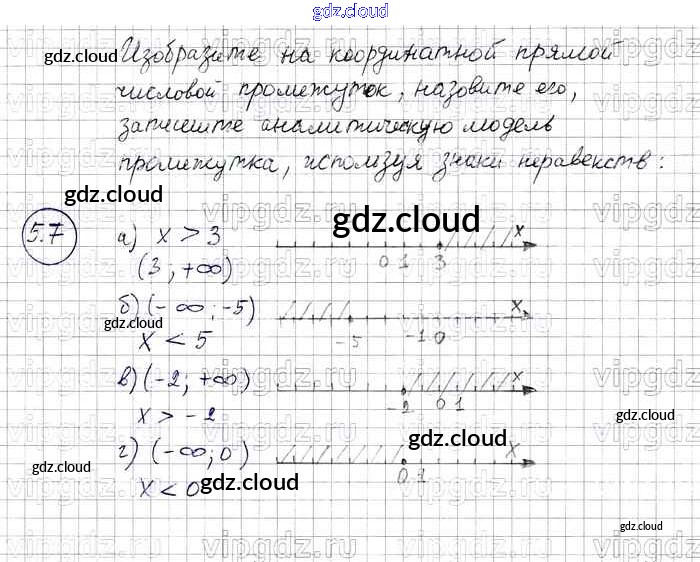 gdz.cloud
Изобразите на координатной прямой
числовой промежуток, назовите его,
запишите аналитическую модель
промежутка, используя знаки неравенств:
5.7
а) x > 3
(3 ; +∞)
0 1 3 x
б) (-∞ ; -5)
x < 5
-5 -1 0 x
в) (-2; +∞)
x > -2
-2 0 1 x
г) (-∞; 0)
x < 0
0 1 x
gdz.cloud
gdz.cloud
gdz.cloud
gdz.cloud
gdz.cloud
gdz.cloud
gdz.cloud
gdz.cloud
gdz.cloud
vipgdz.ru